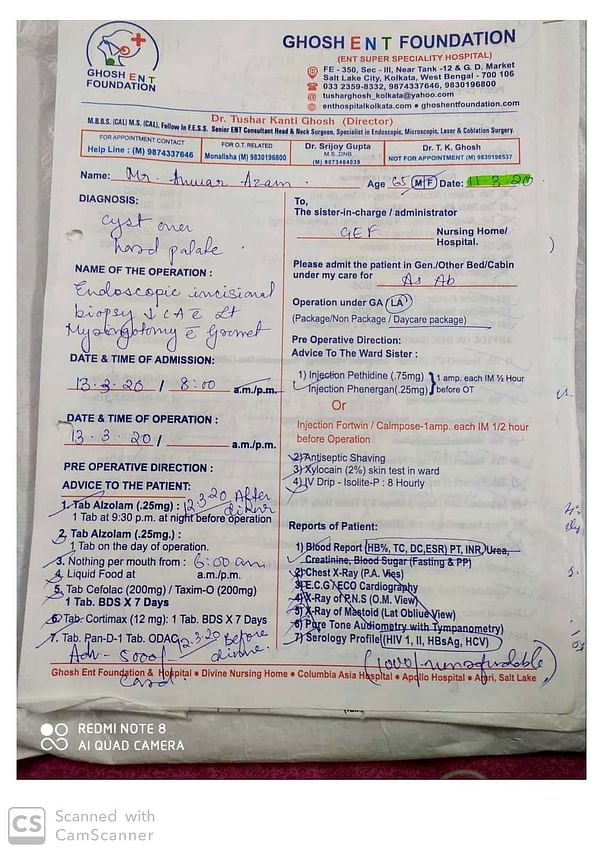 GHOSH ENT
FOUNDATION
GHOSH E N T FOUNDATION
(ENT SUPER SPECIALITY HOSPITAL)
FE - 350, Sec - III, Near Tank -12 & G. D. Market
Salt Lake City, Kolkata, West Bengal - 700 106
033 2359-8332, 9874337646, 9830196800
tusharghosh_kolkata@yahoo.com
enthospitalkolkata.com • ghoshentfoundation.com
Dr. Tushar Kanti Ghosh (Director)
M.B.B.S. (CAL) M.S. (CAL), Fellow In F.E.S.S. Senior ENT Consultant Head & Neck Surgeon, Specialist in Endoscopic, Microscopic, Laser & Coblation Surgery.
FOR APPOINTMENT CONTACT
Help Line : (M) 9874337646
FOR O.T. RELATED
Monalisha (M) 9830196800
Dr. Srijoy Gupta
M.S.,DNB
(M) 9073464039
Dr. T. K. Ghosh
NOT FOR APPOINTMENT (M) 9830196537
Name: Mr. Anwar Azam. Age 65 M/F Date: 11.3.20
DIAGNOSIS:
Cyst over
hard palate.
NAME OF THE OPERATION :
Endoscopic incisional
biopsy
DATE & TIME OF ADMISSION:
13.3.20 / 8:00 a.m./p.m.
DATE & TIME OF OPERATION :
13.3.20 / a.m./p.m.
PRE OPERATIVE DIRECTION :
ADVICE TO THE PATIENT:
1. Tab Alzolam (.25mg) : 12.3.20 After dinner
1 Tab at 9:30 p.m. at night before operation
2. Tab Alzolam (.25mg.) :
1 Tab on the day of operation.
3. Nothing per mouth from : 6:00 am
4. Liquid Food at a.m./p.m.
5. Tab Cefolac (200mg) / Taxim-O (200mg)
1 Tab. BDS X 7 Days
6. Tab. Cortimax (12 mg): 1 Tab. BDS X 7 Days
7. Tab. Pan-D-1 Tab. ODAC 12.3.20 Before dinner.
Adv - 5000/-
Card.
To,
The sister-in-charge / administrator
GEF Nursing Home/
Hospital.
Please admit the patient in Gen./Other Bed/Cabin
under my care for As Ab
Operation under GA / LA
(Package/Non Package / Daycare package)
Pre Operative Direction:
Advice To The Ward Sister :
1) Injection Pethidine (.75mg)
Injection Phenergan(.25mg)
1 amp. each IM ½ Hour
before OT
Or
Injection Fortwin / Calmpose-1amp. each IM 1/2 hour
before Operation
2) Antiseptic Shaving
3) Xylocain (2%) skin test in ward
4) IV Drip - Isolite-P : 8 Hourly
Reports of Patient:
1) Blood Report (HB%, TC, DC,ESR) PT, INR, Urea,
Creatinine, Blood Sugar (Fasting & PP)
2) Chest X-Ray (P.A. Vies)
3) E.C.G./ECO Cardiography
4) X-Ray of P.N.S (O.M. View)
5) X-Ray of Mastoid (Lat Obliue View)
6) Pure Tone Audiometry with Tympanometry)
7) Serology Profile (HIV 1, II, HBsAg, HCV)
(1000/- nonrefundable)
Ghosh Ent Foundation & Hospital • Divine Nursing Home • Columbia Asia Hospital • Apollo Hospital • Amri, Salt Lake
REDMI NOTE 8
AI QUAD CAMERA
CS Scanned with
CamScanner